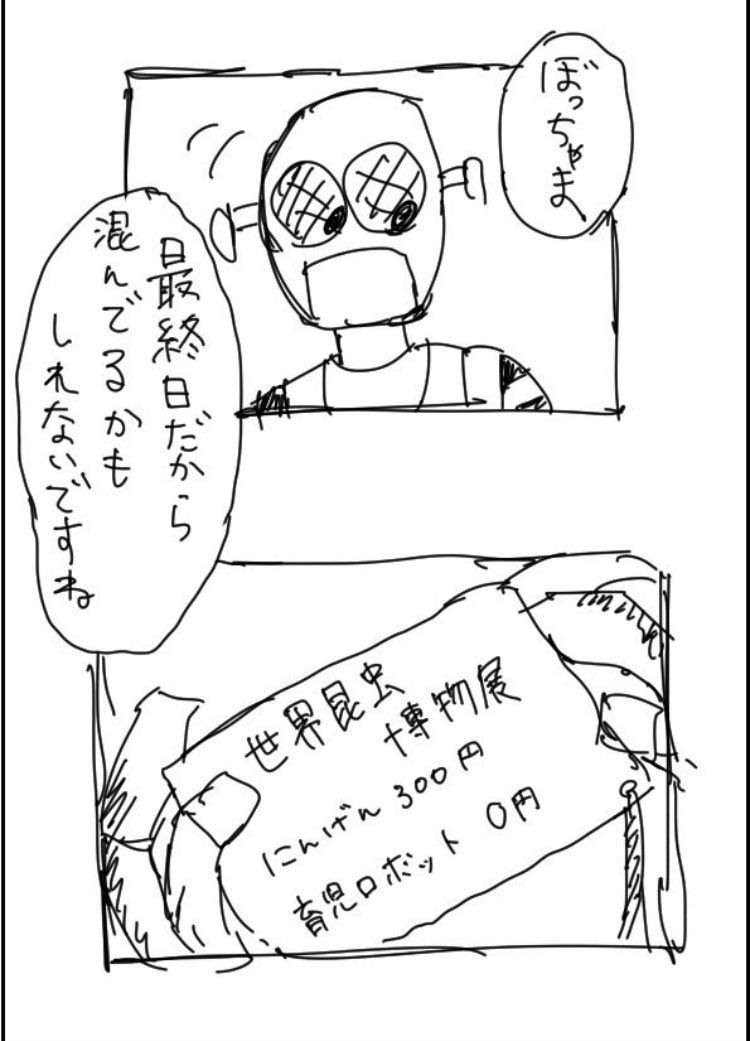 ぼっちゃま、
最終日だから
混んでるかも
しれないですね
世界昆虫
博物展
にんげん 300円
育児ロボット 0円